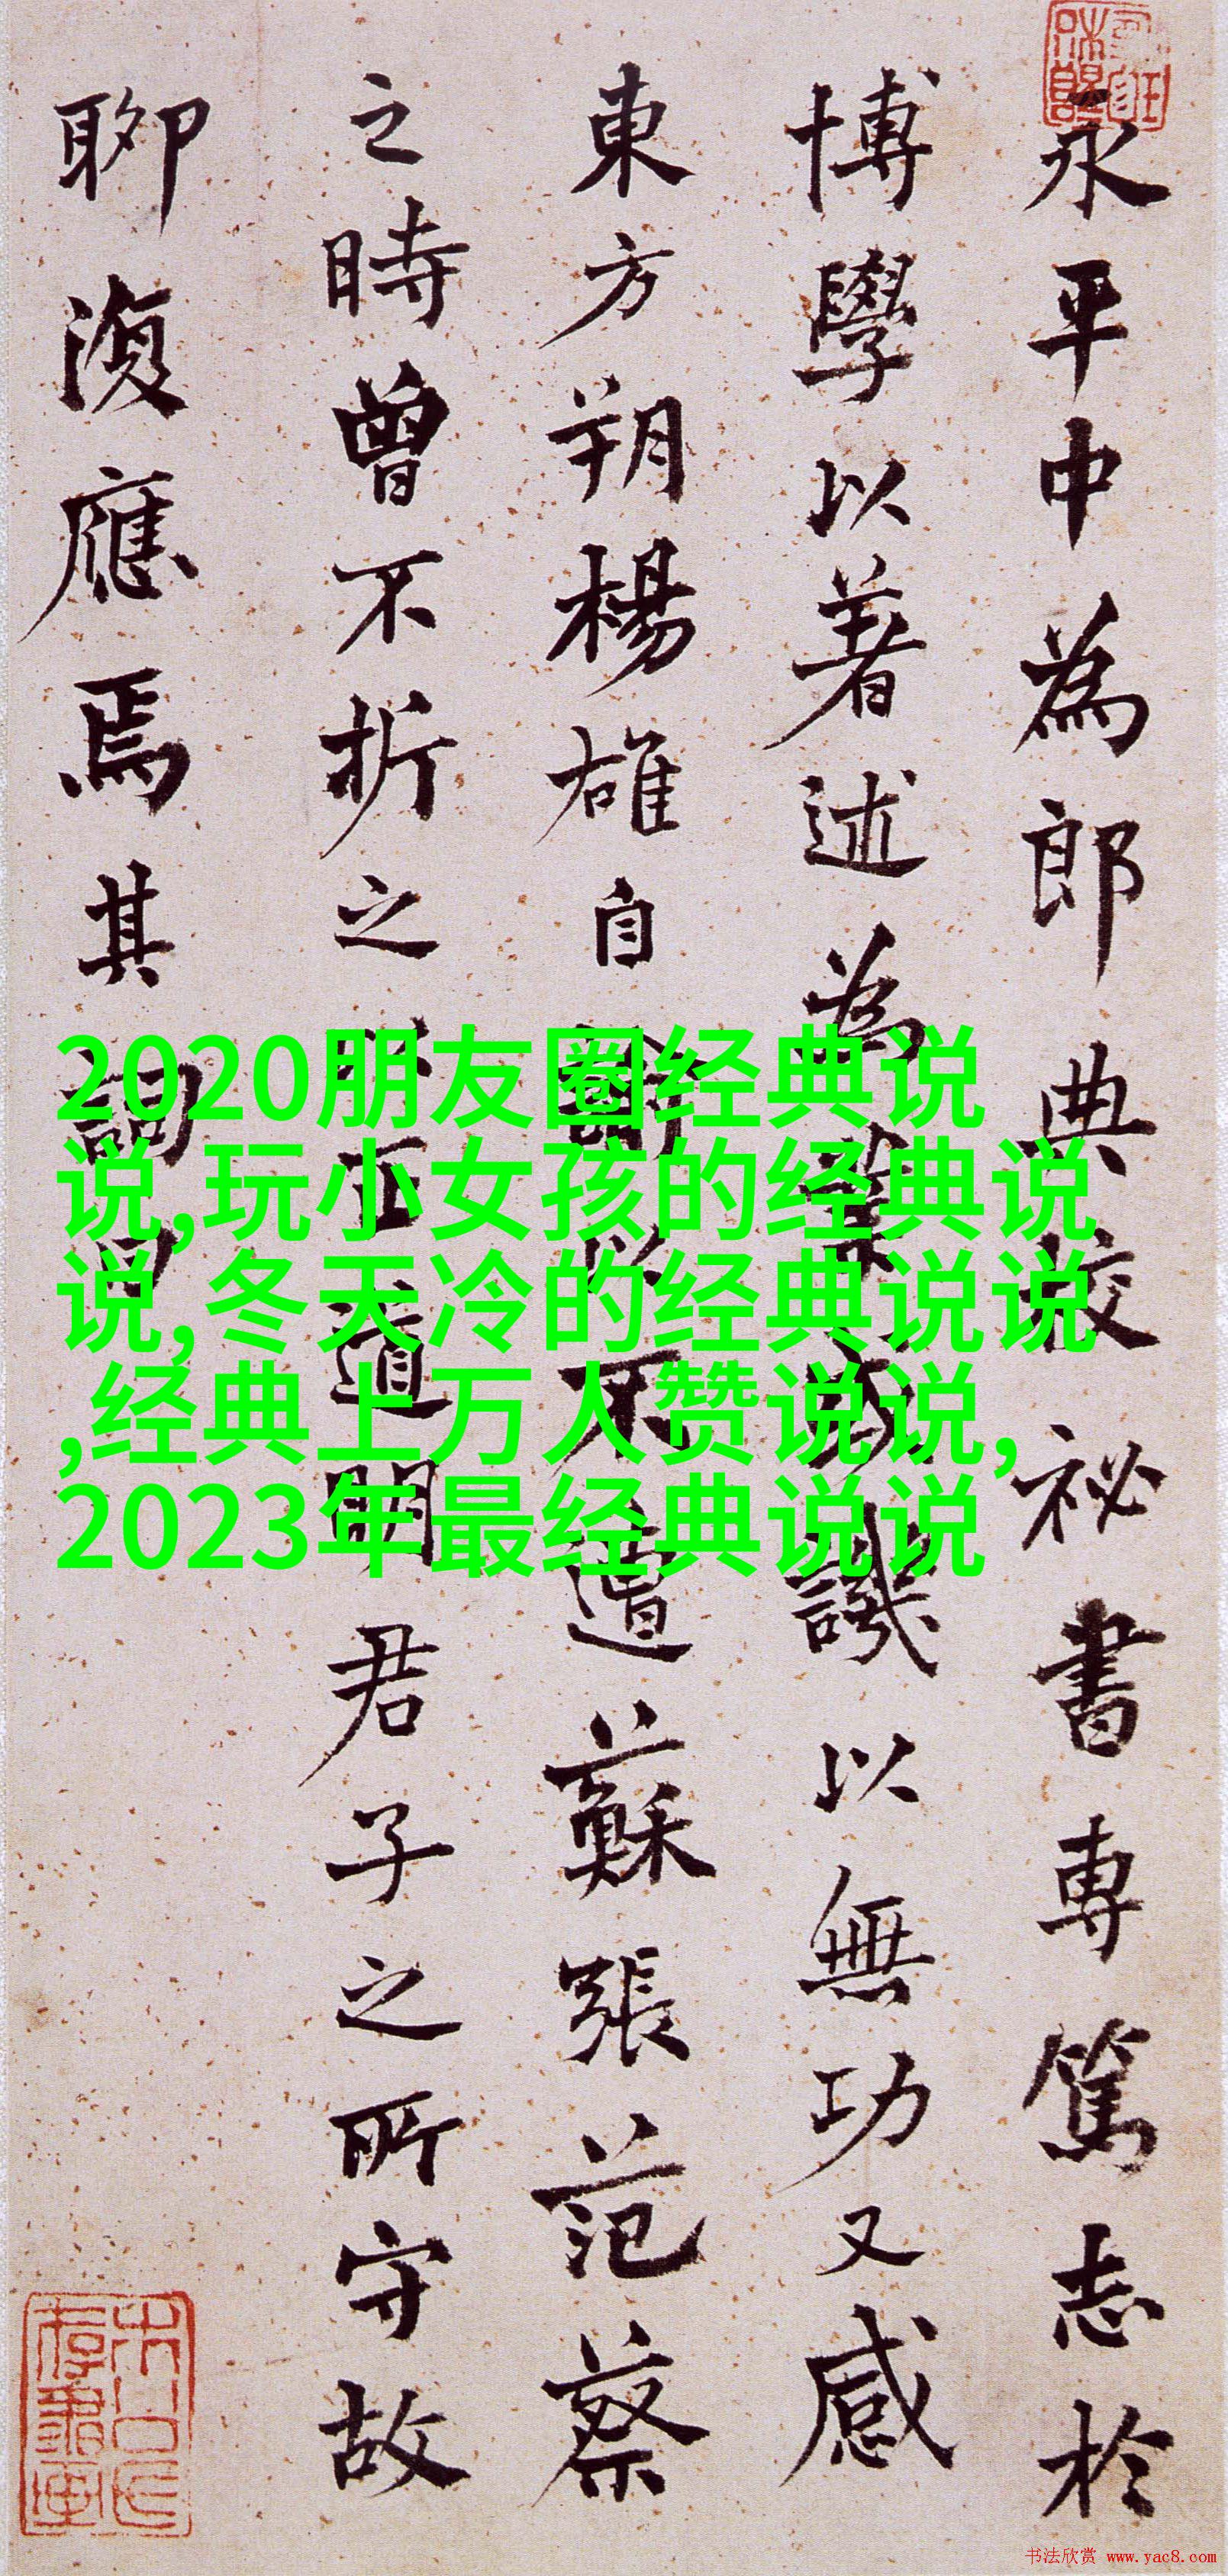 永平中為郎典校祕書專篤志於
博學以著述為業或譏以無功又感
東方朔楊雄自以不遭蘇張范蔡
之時曾不折之以正道明君子之所守故
聊復應焉其詞曰
2020朋友圈经典说
说,玩小女孩的经典说
说,冬天冷的经典说说
,经典上万人赞说说,
2023年最经典说说
书法欣赏 www.yac8.com